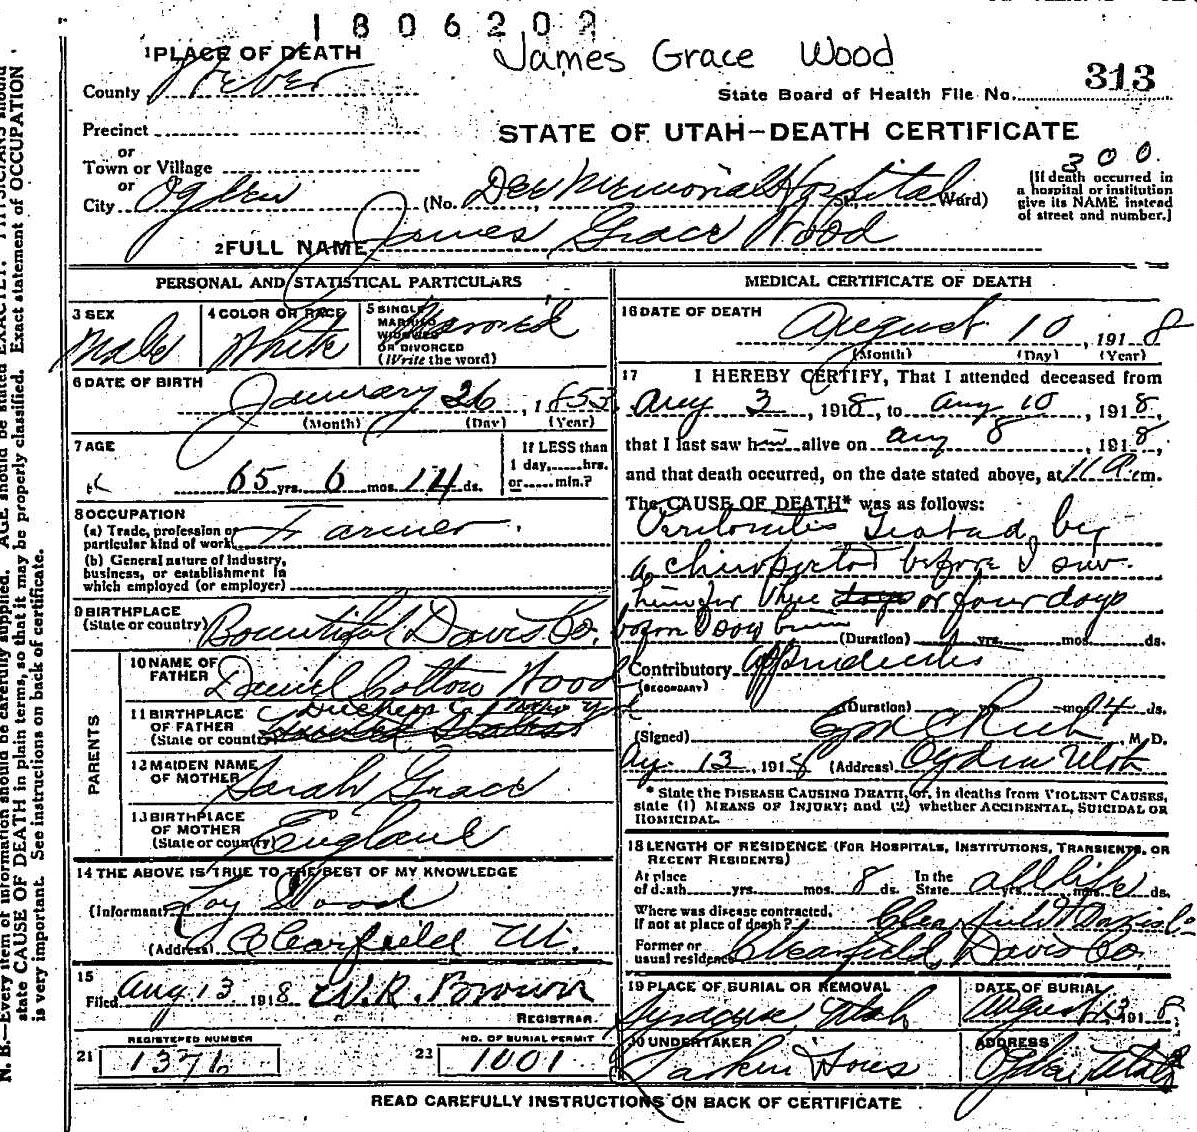 1806202
James Grace Wood
313
State Board of Health File No.
1 PLACE OF DEATH
County Weber
STATE OF UTAH-DEATH CERTIFICATE
Precinct
or
Town or Village
or
City Ogden (No. Dee Memorial Hospital St. Ward)
300.
[If death occurred in
a hospital or institution
give its NAME instead
of street and number.]
2 FULL NAME James Grace Wood
PERSONAL AND STATISTICAL PARTICULARS
3 SEX
Male
4 COLOR OR RACE
White
5 SINGLE
MARRIED
WIDOWED
OR DIVORCED
(Write the word)
6 DATE OF BIRTH
January 26, 1853
(Month) (Day) (Year)
7 AGE
65 yrs. 6 mos. 14 ds.
If LESS than
1 day, hrs.
or min.?
8 OCCUPATION
(a) Trade, profession or
particular kind of work Farmer.
(b) General nature of Industry,
business, or establishment in
which employed (or employer)
9 BIRTHPLACE
(State or country) Bountiful Davis Co.
PARENTS
10 NAME OF
FATHER Daniel Cotton Wood
11 BIRTHPLACE
OF FATHER
(State or country) Duchess Co.
12 MAIDEN NAME
OF MOTHER Sarah Grace
13 BIRTHPLACE
OF MOTHER
(State or country) England
14 THE ABOVE IS TRUE TO THE BEST OF MY KNOWLEDGE
(Informant) Loy Wood
(Address) Clearfield Ut.
15
Filed Aug 13 1918 W. R. Brown
REGISTRAR.
21 REGISTERED NUMBER
1376
23 NO. OF BURIAL PERMIT
1001
MEDICAL CERTIFICATE OF DEATH
16 DATE OF DEATH
August 10, 1918
(Month) (Day) (Year)
17 I HEREBY CERTIFY, That I attended deceased from
Aug 3, 1918, to Aug 10, 1918,
that I last saw him alive on Aug 8, 1918,
and that death occurred, on the date stated above, at 11 a. m.
The CAUSE OF DEATH* was as follows:
Peritonitis Treated by
a chiropractor before I saw
him for three days or four days
before I saw him
(Duration) yrs. mos. ds.
Contributory Appendicitis
(SECONDARY)
(Duration) yrs. mos. 14 ds.
(Signed) Rich M. D.
Aug. 13, 1918 (Address) Ogden Utah
* State the DISEASE CAUSING DEATH, or, in deaths from VIOLENT CAUSES,
state (1) MEANS OF INJURY; and (2) whether ACCIDENTAL, SUICIDAL OR
HOMICIDAL.
18 LENGTH OF RESIDENCE (FOR HOSPITALS, INSTITUTIONS, TRANSIENTS, OR
RECENT RESIDENTS)
At place
of death yrs. mos. 8 ds. In the
State all life yrs. mos. ds.
Where was disease contracted,
If not at place of death? Clearfield Davis Co
Former or
usual residence Clearfield, Davis Co.
19 PLACE OF BURIAL OR REMOVAL
Syracuse, Utah
DATE OF BURIAL
August 13 1918
20 UNDERTAKER
Larkin Sons
ADDRESS
Ogden Utah
READ CAREFULLY INSTRUCTIONS ON BACK OF CERTIFICATE
N. B.—Every item of information should be carefully supplied. AGE should be stated EXACTLY. PHYSICIANS should
state CAUSE OF DEATH in plain terms, so that it may be properly classified. Exact statement of OCCUPATION
is very important. See instructions on back of certificate.